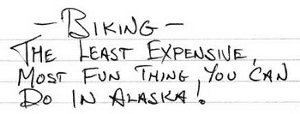 - BIKING -
THE LEAST EXPENSIVE,
MOST FUN THING, YOU CAN
DO IN ALASKA!